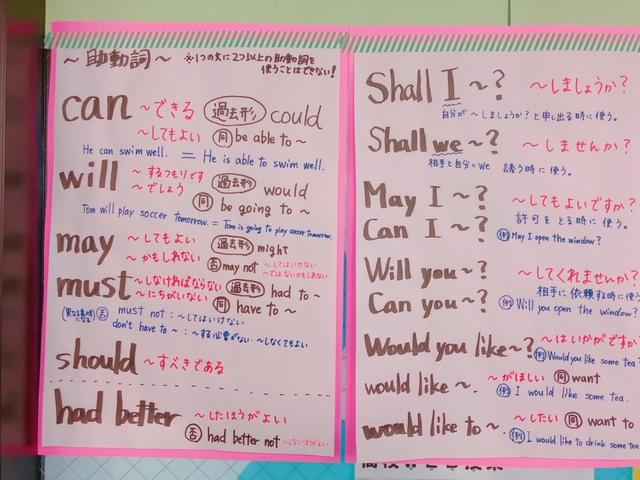 ～助動詞～ ※1つの文に2つ以上の助動詞を
使うことはできない!
can ～できる 過去形 could
～してもよい 同 be able to ～
He can swim well. = He is able to swim well.
will ～するつもりです 過去形 would
～でしょう 同 be going to ～
Tom will play soccer tomorrow. = Tom is going to play soccer tomorrow.
may ～してもよい 過去形 might
～かもしれない 否 may not ～してはいけない
～ではないかもしれない
must ～しなければならない 過去形 had to ～
～にちがいない 同 have to ～
否 must not : ～してはいけない
don't have to ～ : ～する必要がない・～しなくてもよい
should ～すべきである
had better ～したほうがよい
否 had better not ～しないほうがよい
Shall I ～? ～しましょうか?
自分が ～しましょうか? と申し出る時に使う。
Shall we ～? ～しませんか?
相手と自分=we 誘う時に使う。
May I ～? ～してもよいですか?
Can I ～? 許可をとる時に使う。
例 May I open the window?
Will you～? ～してくれませんか?
相手に依頼する時に使う
Can you～? 例 Will you open the window?
Would you like～? ～はいかがですか
例 Would you like some tea
would like ～. ～がほしい 同 want
例 I would like some tea.
would like to ～. ～したい 同 want to
例 I would like to drink some tea